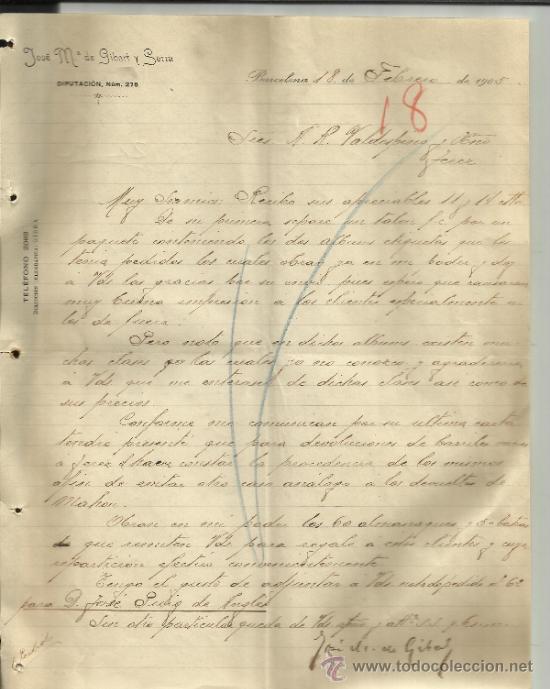 José Mª de Gibert y Serra
DIPUTACIÓN, Núm. 278
Barcelona 18 de Febrero de 1905
18
Sres A. R. Valdespino y Hno
Jerez
TELÉFONO 2069
Muy Sres mios: Recibo sus apreciables 11 y 14 cte
De su primera separé un talon f.c. por un
paquete conteniendo los dos albums etiquetas que les
tenia pedidos los cuales obran ya en mi poder y doy
á Vds las gracias por su envio pues espero que causaran
muy buena impresion a los clientes especialmente a
los de fuera.
Pero noto que en dichos albums existen mu-
chas clases que las cuales yo no conozco y agradeceria
á Vds. que me enterasen de dichas clases asi como de
sus precios.
Conforme me comunican por su ultima carta
tendré presente que para devoluciones de barriles
á Jerez hacer constar la procedencia de los mismos
afin de evitar otro caso análogo a los devueltos de
Mahon.
Obran en mi poder los 60 almanaques y
que remiten Vds. para regalo a estos clientes y cuya
reparticion efectuo convenientemente.
Tengo el gusto de adjuntar a Vds. pedido nº 62
para D. José Puig de
Sin otro particular queda de Vds atto y
José M. de Gibert
www.todocoleccion.net